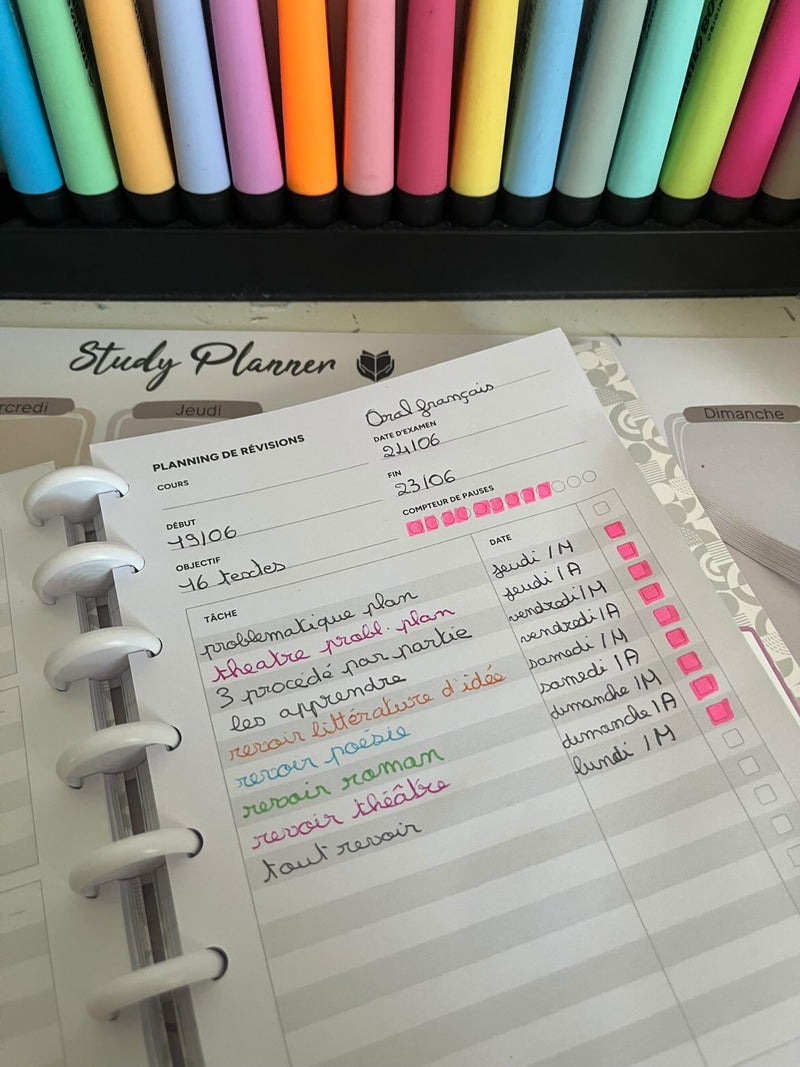 Study Planner
rcredi
Jeudi
Dimanche
PLANNING DE RÉVISIONS
COURS
Oral français
DATE D'EXAMEN
24/06
DÉBUT
19/06
FIN
23/06
OBJECTIF
16 textes
COMPTEUR DE PAUSES
TÂCHE DATE
problematique plan jeudi / M
theatre probl. plan jeudi / A
3 procédé par partie vendredi / M
les apprendre vendredi / A
revoir littérature d'idée samedi / M
revoir poésie samedi / A
revoir roman dimanche / M
revoir théâtre dimanche / A
tout revoir lundi / M